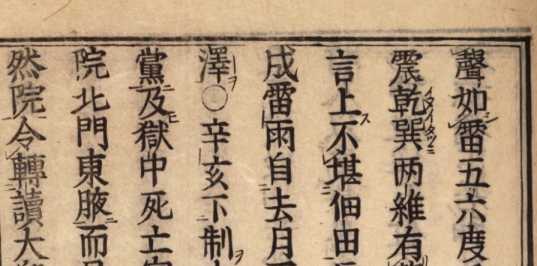 聲如雷五六度
震乾巽两維有
言上不堪佃田
成雷雨自去月
澤○辛亥下制
黨及獄中死亡
院北門東腋而
然院令轉讀大